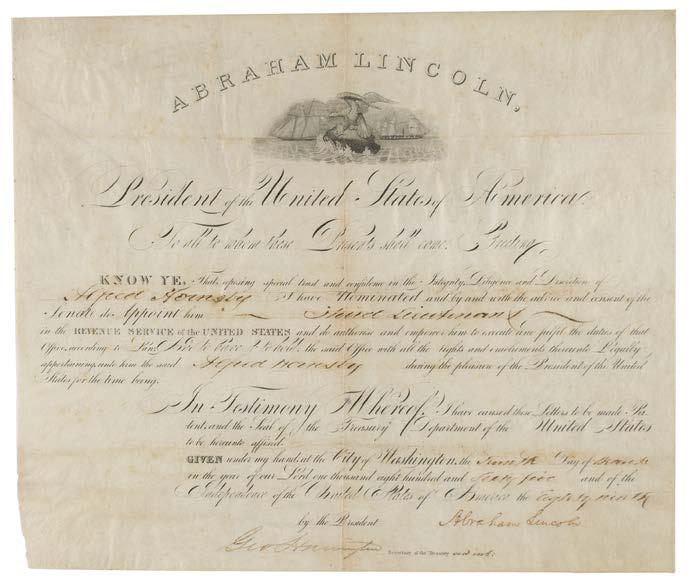 ABRAHAM LINCOLN,
President of the United States of America.
To all to whom these Presents shall come. Greeting,
KNOW YE, That reposing special trust and confidence in the Integrity, Diligence and Discretion of
Alfred Hornsby I have Nominated and by and with the advice and consent of the
Senate do Appoint him Third Lieutenant
in the REVENUE SERVICE of the UNITED STATES and do authorise and empower him to execute and fulfil the duties of that
Office, according to Law, And to have & to hold, the said Office with all the rights and emoluments thereunto legally
appertaining unto him the said Alfred Hornsby during the pleasure of the President of the United
States for the time being.
In Testimony Whereof, I have caused these Letters to be made Pa-
tent, and the Seal of the Treasury Department of the United States
to be hereunto affixed.
GIVEN under my hand, at the City of Washington, the Day of
in the year of our Lord one thousand eight hundred and sixty five and of the
Independence of the United States of America the Eighty ninth
by the President Abraham Lincoln
Geo Harrington Secretary of the Treasury